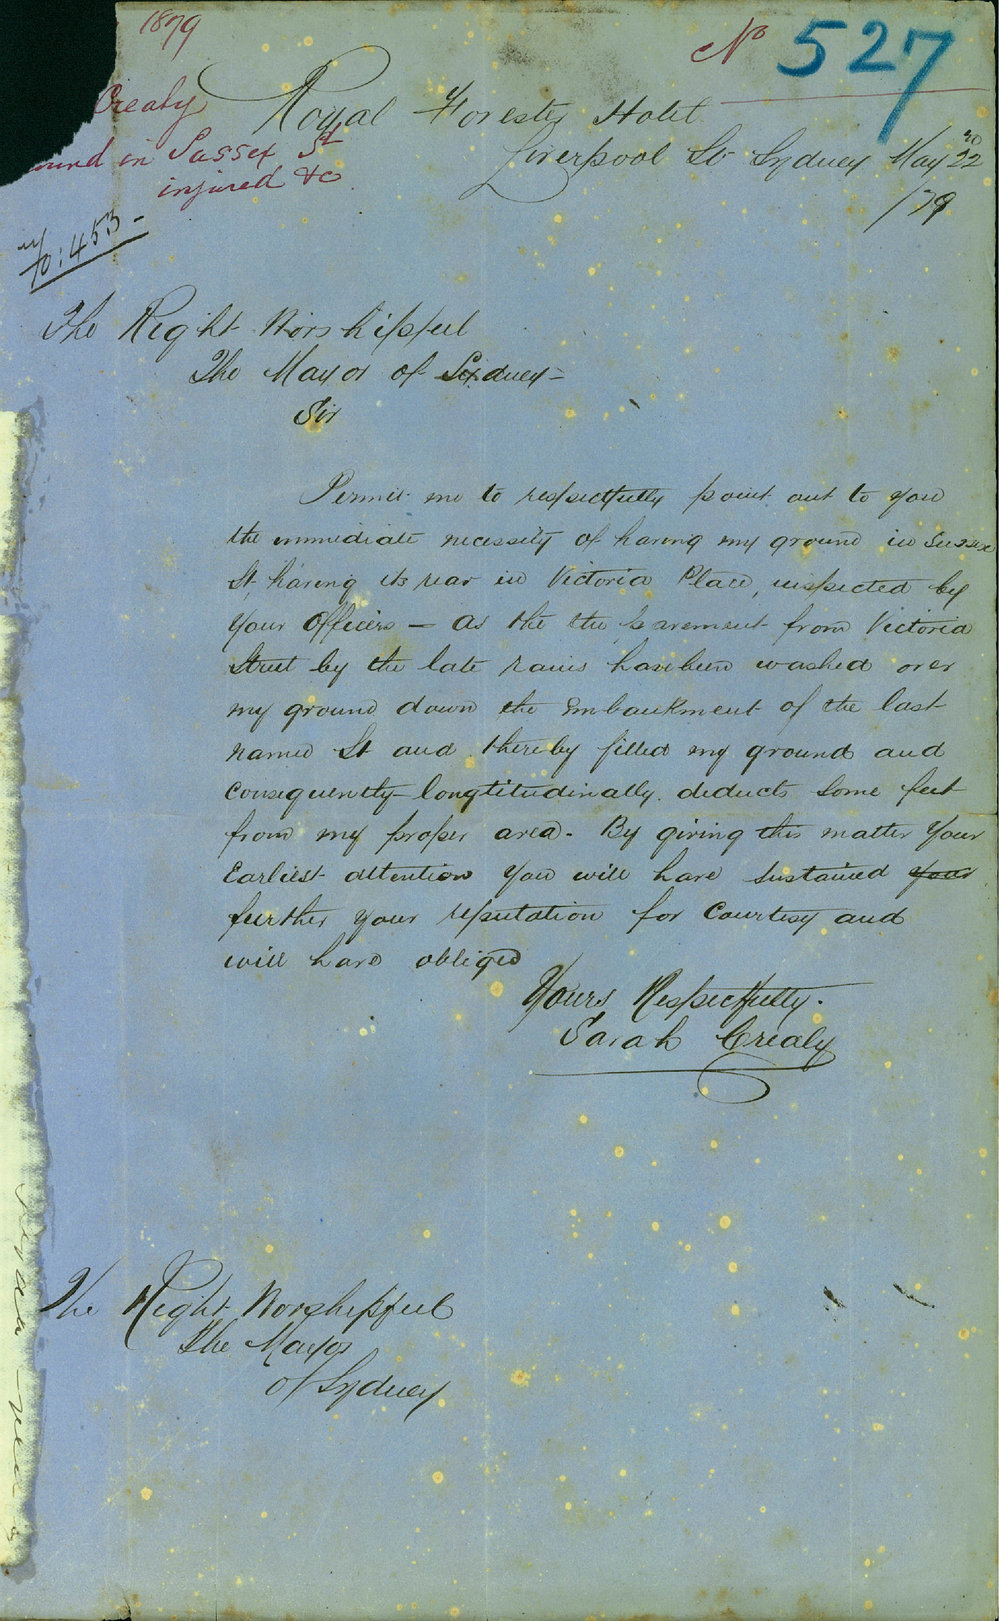 1879
No 527
Crealy
Royal Forester Hotel
ound in Sussex St
Liverpool St Sydney May 22nd
injured &c
/79
453 -
The Right Worshipful
The Mayor of Sydney -
Sir
Permit me to respectfully point out to you
the immediate necessity of having my ground in Sussex
St, having its rear in Victoria Place, inspected by
Your Officers - As the the pavement from Victoria
Street by the late rains have been washed over
my ground down the Embankment of the last
named St and thereby filled my ground and
Consequently longtitudinally deducts some feet
from my proper area. By giving this matter Your
Earliest attention You will have sustained your
further your reputation for Courtesy and
will have obliged
Yours Respectfully.
Sarah Crealy
The Right Worshipful
The Mayor
of Sydney